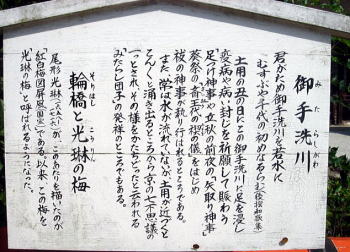 御手洗川
みたらしがわ
君がため御手洗川を若水に
むすぶや千代の初めなるらむ
土用の丑の日にこの御手洗川に足を浸し
疫病や病い封じを祈願して賑わう
足つけ神事や立秋の前夜の矢取り神事
葵祭の斎王代の禊の儀をはじめ
祓の神事が執り行はれるところである。
また、常は水が流れてないが、土用が近づくと
こんこんと湧き出るところから京の七不思議の
一つとされ、その様をかたちどったと云われる
「みたらし団子」の発祥のところでもある。
輪橋と光琳の梅
そりはし
こうりん
尾形光琳が、このあたりを描いたのが
「紅白梅図屏風」(国宝)である。以来、この梅を
「光琳の梅」と呼ばれるようになった。